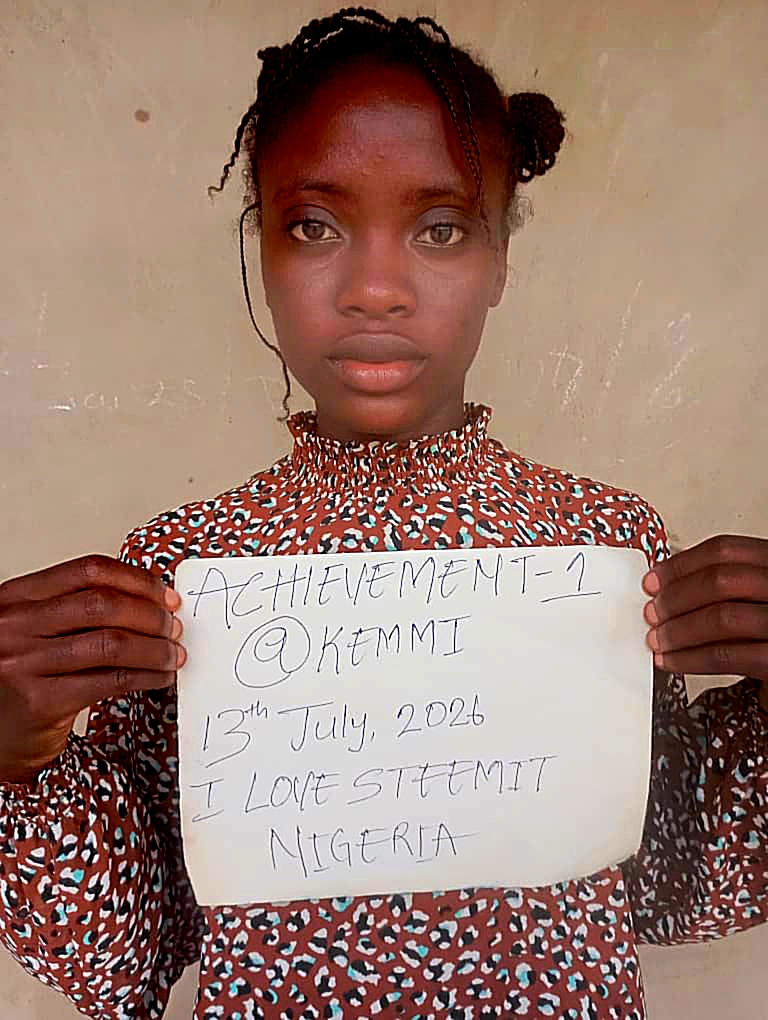 ACHIEVEMENT-1
@KEMMI
13th July, 2026
I LOVE STEEMIT
NIGERIA